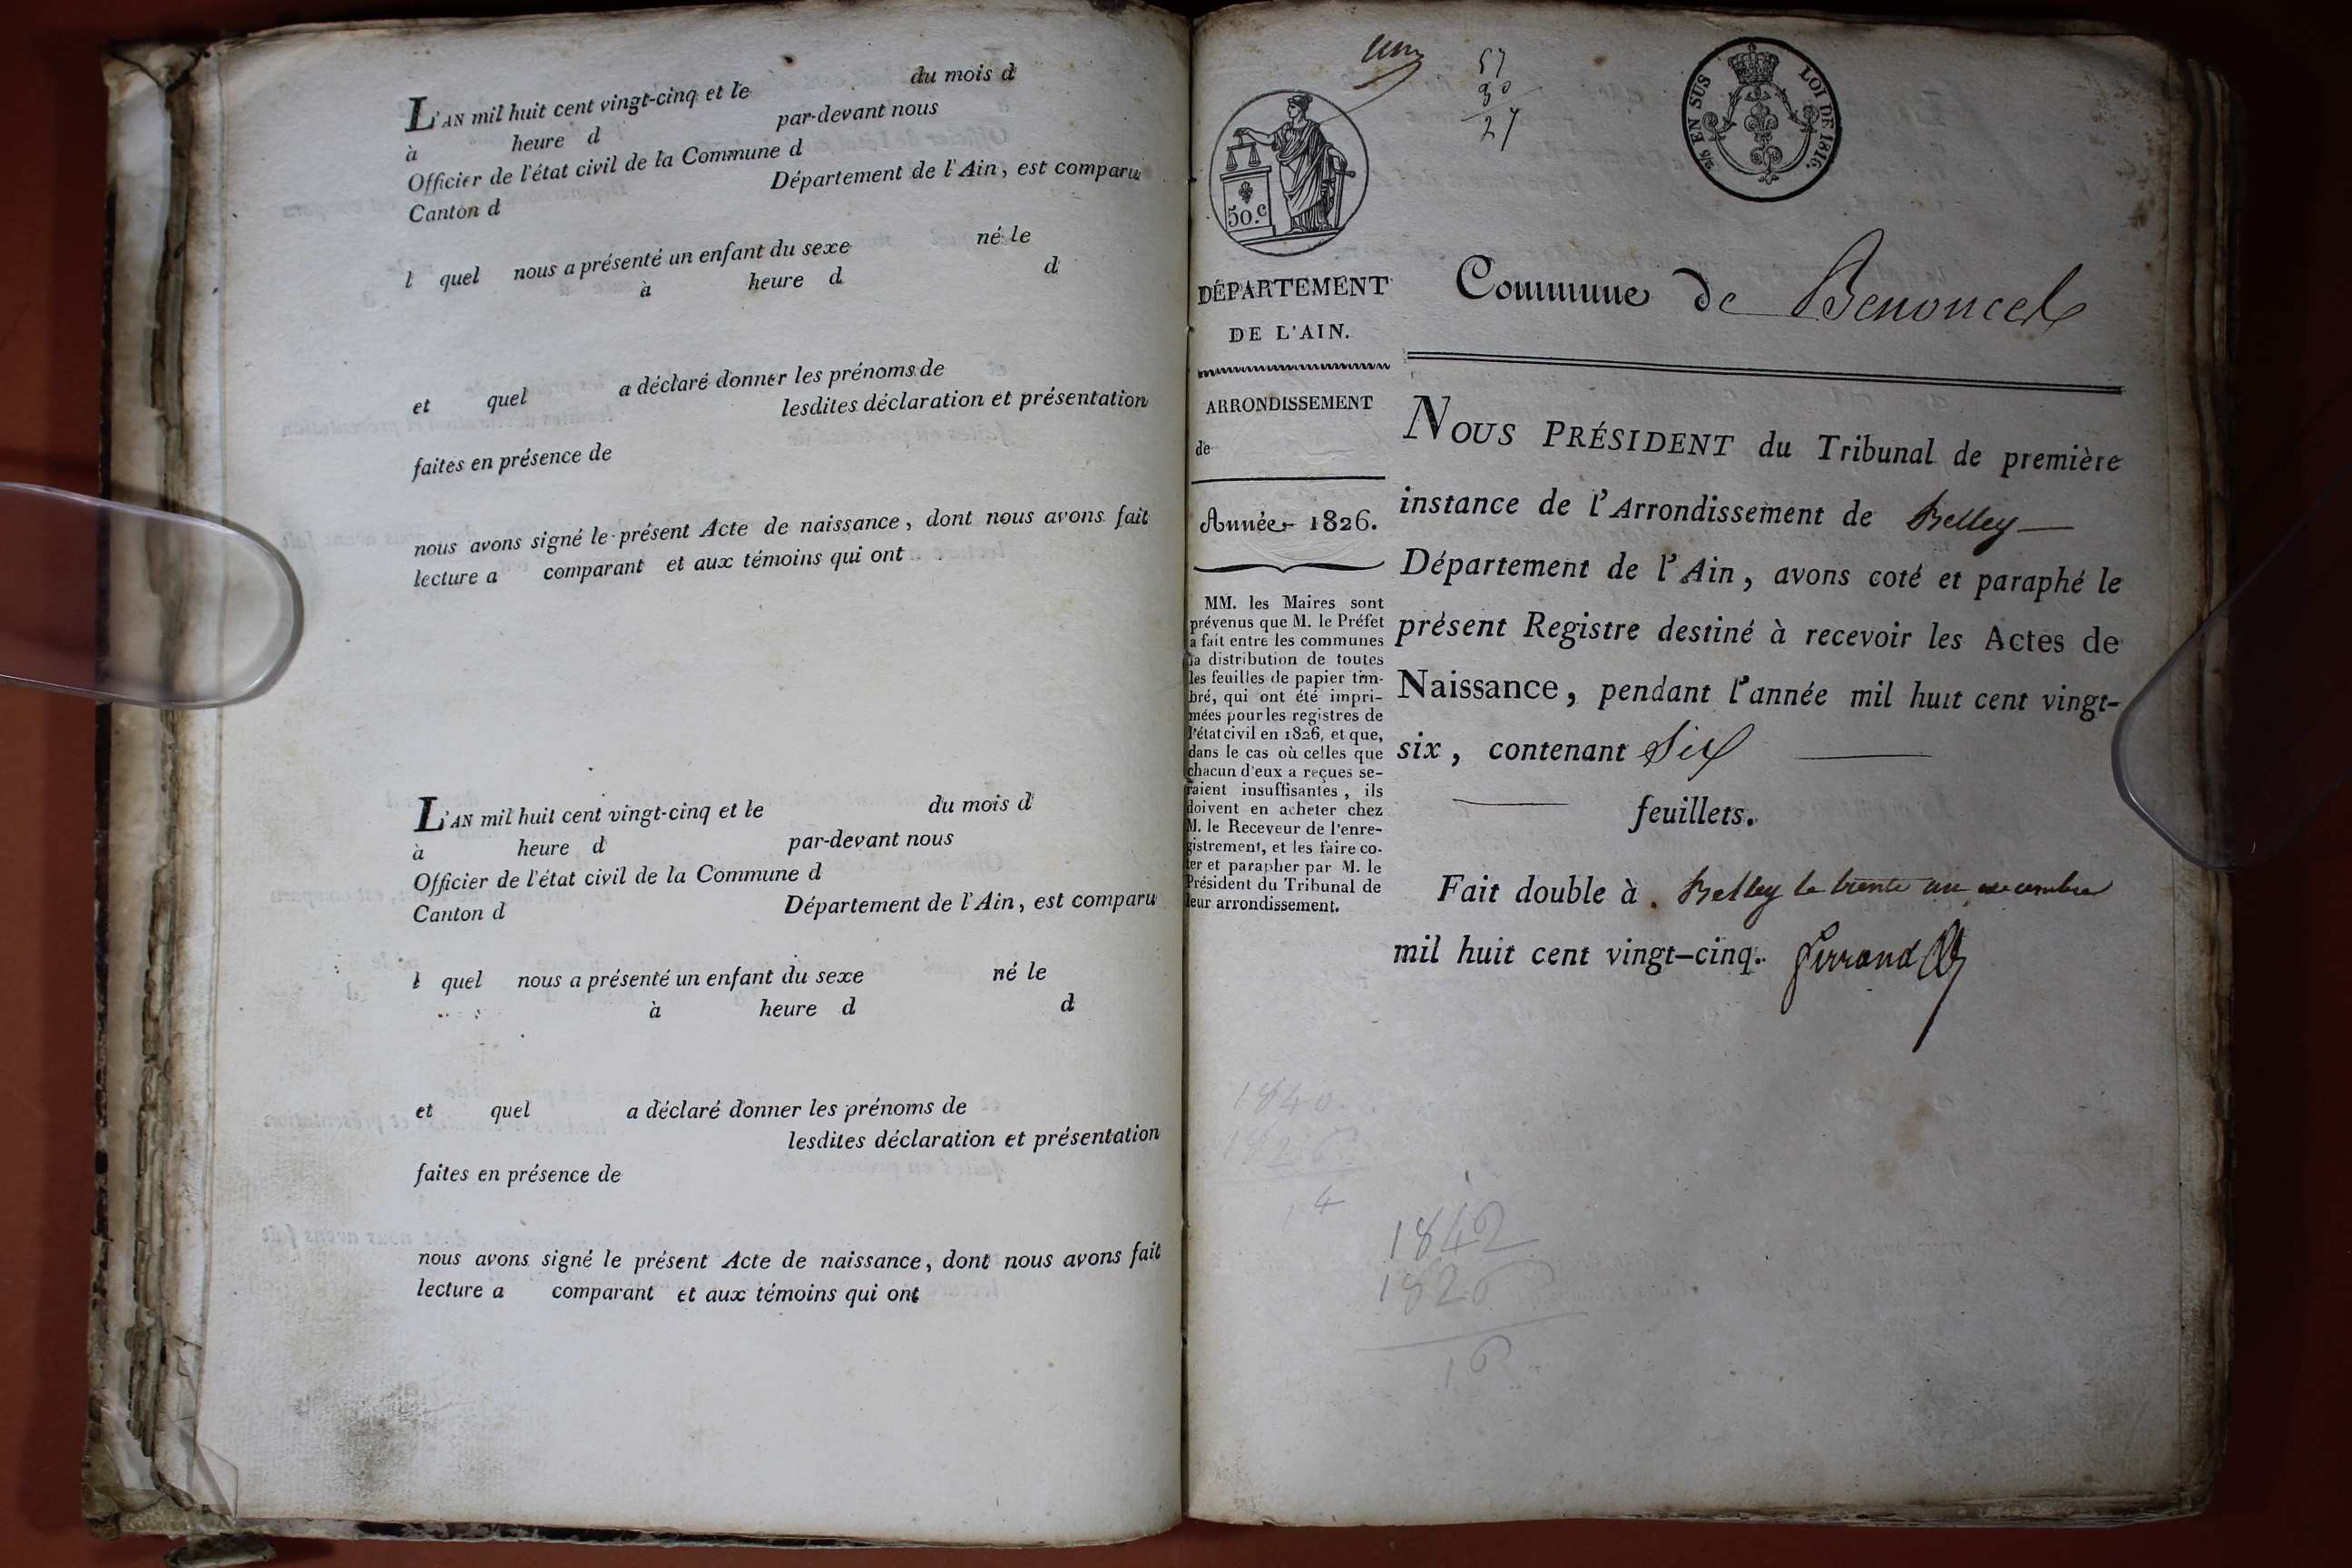 L'AN mil huit cent vingt-cinq et le du mois d
à heure d par-devant nous
Officier de l'état civil de la Commune d
Canton d Département de l'Ain, est comparu
l quel nous a présenté un enfant du sexe né le
à heure d d
et quel a déclaré donner les prénoms de
lesdites déclaration et présentation
faites en présence de
nous avons signé le présent Acte de naissance, dont nous avons fait
lecture a comparant et aux témoins qui ont
L'AN mil huit cent vingt-cinq et le du mois d
à heure d par-devant nous
Officier de l'état civil de la Commune d
Canton d Département de l'Ain, est comparu
l quel nous a présenté un enfant du sexe né le
à heure d d
et quel a déclaré donner les prénoms de
lesdites déclaration et présentation
faites en présence de
nous avons signé le présent Acte de naissance, dont nous avons fait
lecture a comparant et aux témoins qui ont
un
57
30
27
50.c
EN SUS LOI DE 1816.
DÉPARTEMENT
DE L'AIN.
ARRONDISSEMENT
de
Année 1826.
MM. les Maires sont
prévenus que M. le Préfet
a fait entre les communes
la distribution de toutes
les feuilles de papier tim-
bré, qui ont été impri-
mées pour les registres de
l'état civil en 1826, et que,
dans le cas où celles que
chacun d'eux a reçues se-
raient insuffisantes, ils
doivent en acheter chez
M. le Receveur de l'enre-
gistrement, et les faire co-
ter et parapher par M. le
Président du Tribunal de
leur arrondissement.
Commune de Benoncel
NOUS PRÉSIDENT du Tribunal de première
instance de l'Arrondissement de Belley
Département de l'Ain, avons coté et paraphé le
présent Registre destiné à recevoir les Actes de
Naissance, pendant l'année mil huit cent vingt-
six, contenant Six
feuillets.
Fait double à Belley le trente un decembre
mil huit cent vingt-cinq.
1840
1826
14
1842
1826
16